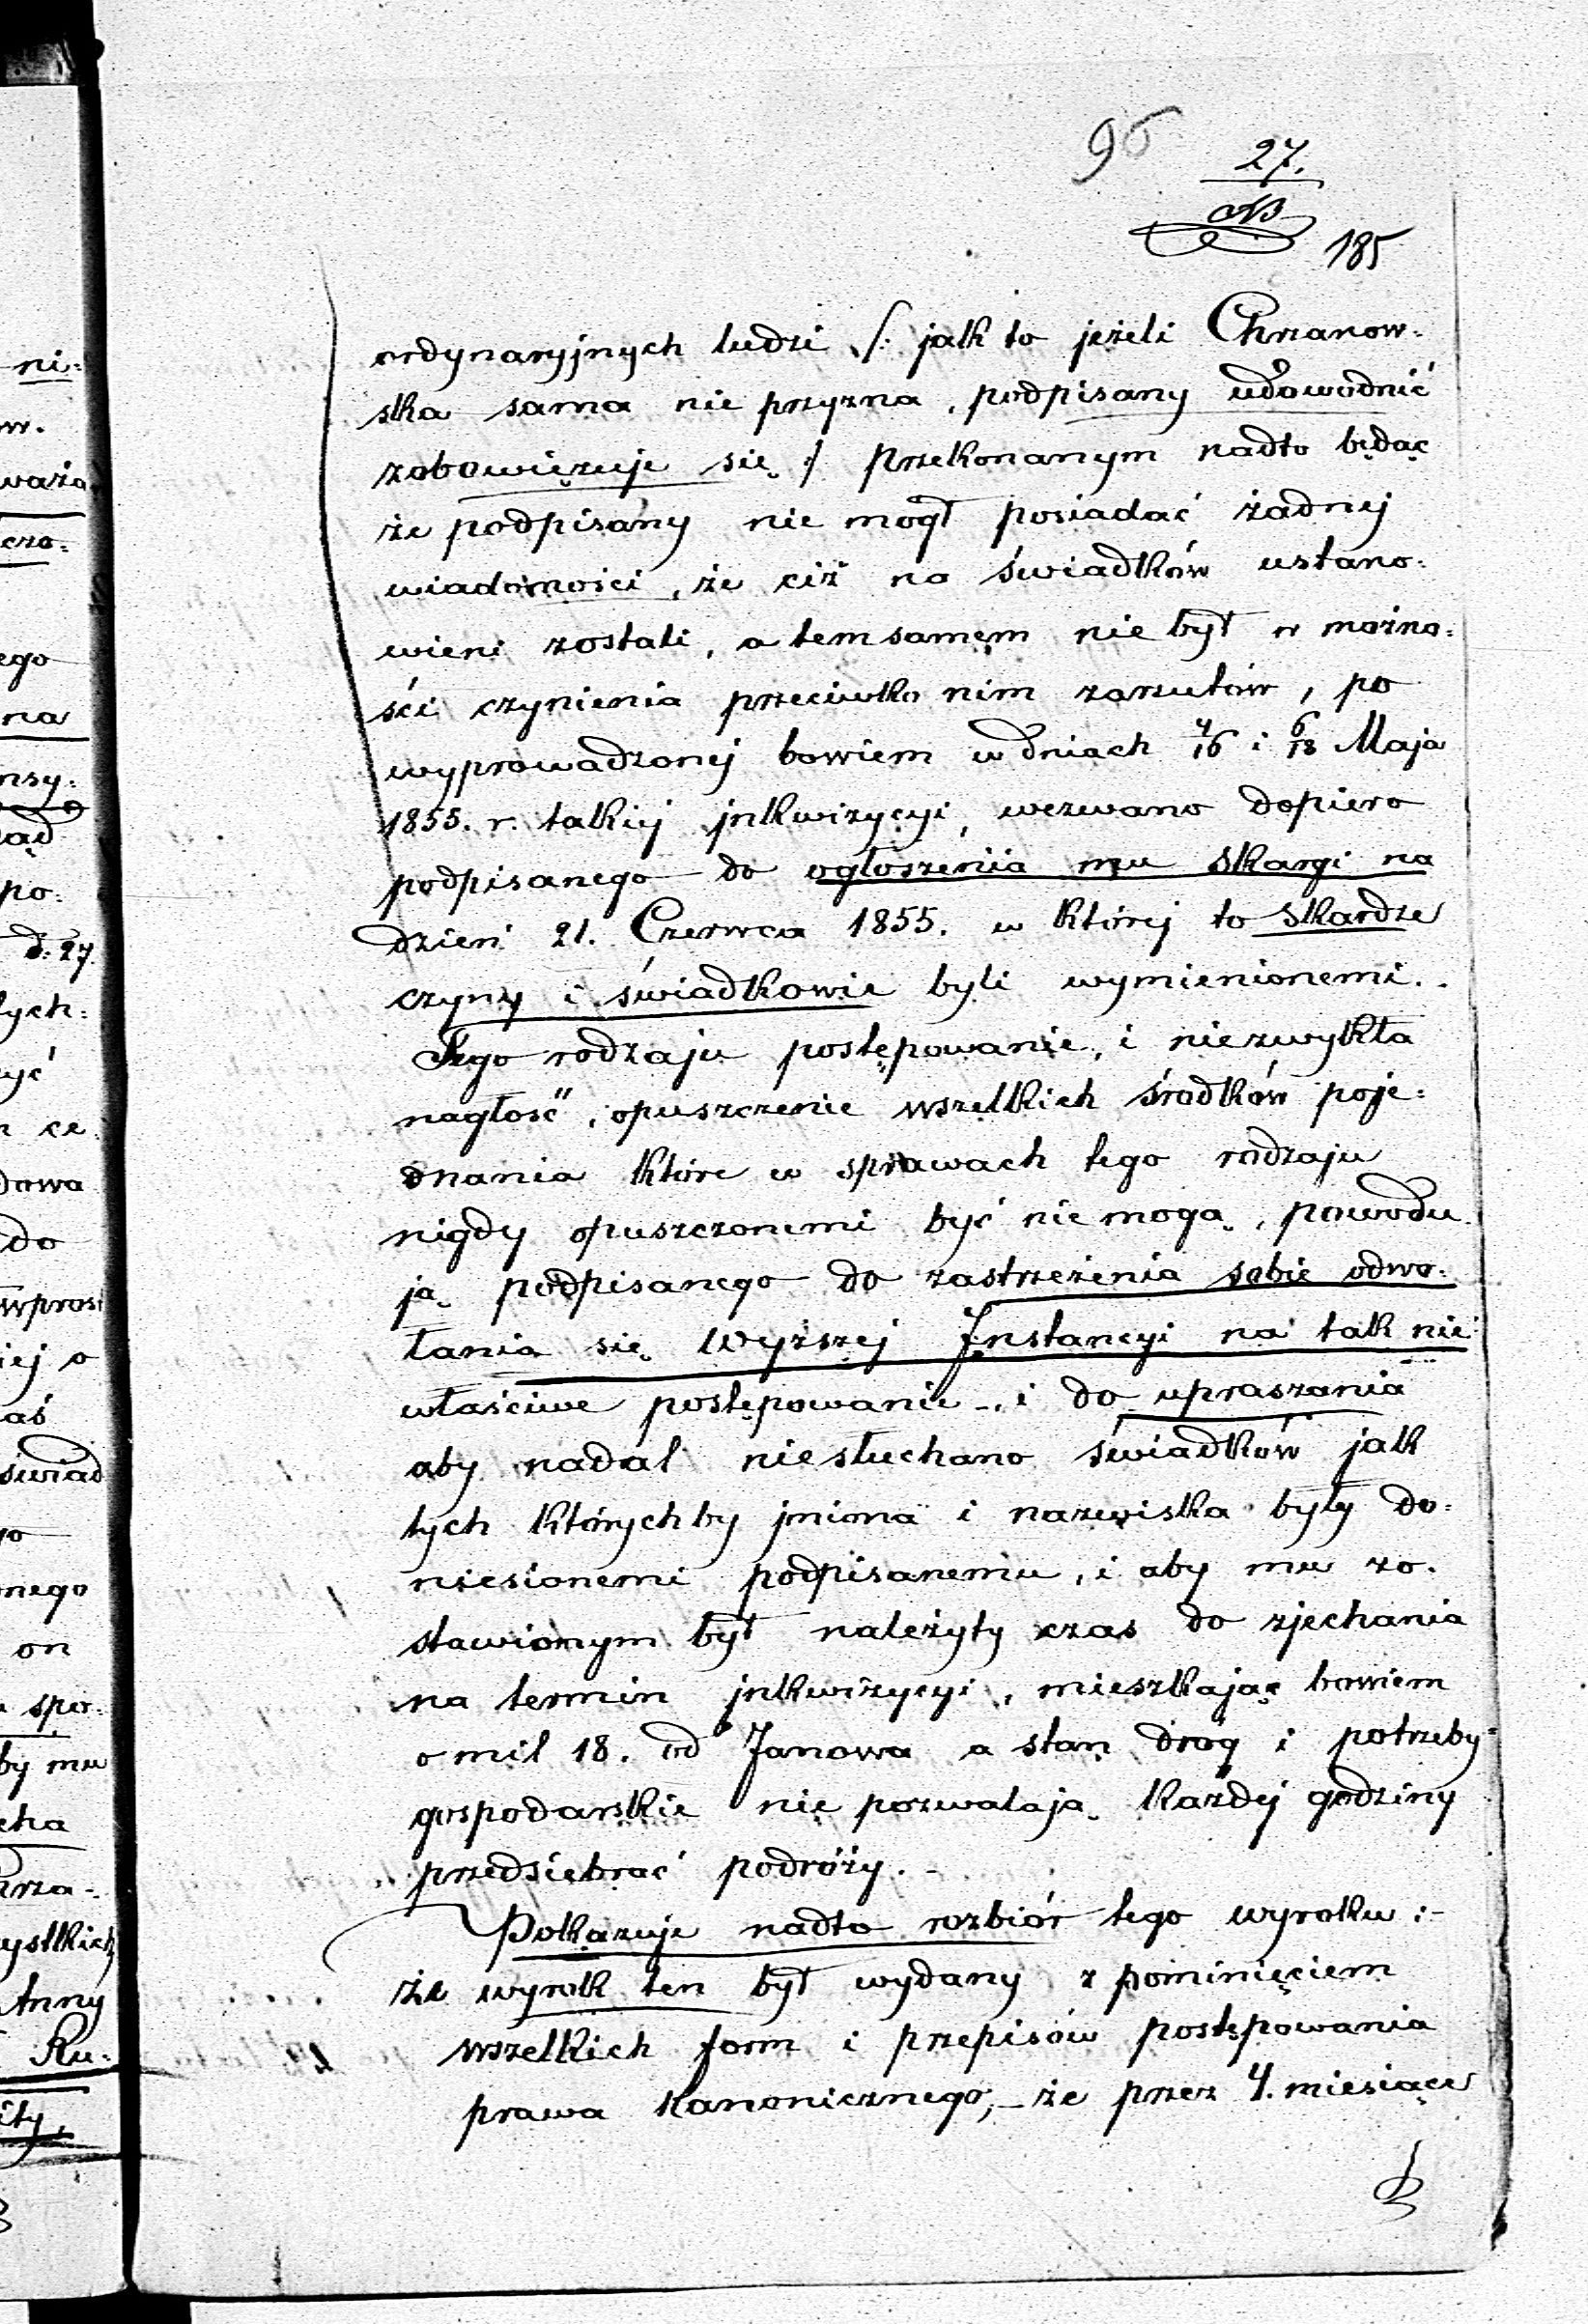 96
27.
185
ordynaryjnych ludzi /: jak to jeżeli Chrzanow:
ska sama nie przyzna, podpisany udowodnić
zobowięzuje się :/ przekonanym nadto będąc
że podpisany nie mogł posiadać żadnej
wiadomości, że ciż na świadków ustano:
wieni zostali, a tem samęm nie był w możno:
ści czynienia przeciwko nim zarzutów, po
wyprowadzonej bowiem w dniach 4/16 i 6/18 Maja
1855. r. takiej jnkwizycyi, wezwano dopiero
podpisanego do ogłoszenia mu skargi na
dzień 21. Czerwca 1855. w której to skardze
czyny i świadkowie byli wymienionemi.
Tego rodzaju postępowanie, i niezwykła
nagłość, opuszczenie wszelkich środków poje:
dnania które w sprawach tego rodzaju
nigdy opuszczonemi być nie mogą, powodu
ją podpisanego do zastrzeżenia sobie odwo:
łania się Wyższej Jnstancyi na tak nie
właściwe postępowanie -, i do upraszania
aby nadal niesłuchano świadków jak
tych którychby jmiona i nazwiska były do:
niesionemi podpisanemu, i aby mu zo.
stawionym był należyty czas do zjechania
na termin jnkwizycyi, mieszkając bowiem
o mil 18. od Janowa a stan drog i potrzeby
gospodarskie nie pozwalają każdej godziny
przedsiebrać podróży. -
Pokazuje nadto rozbiór tego wyroku :-
że wyrok ten był wydany z pominięciem
wszelkich form i przepisów postępowania
prawa Kanonicznego, - że przez 4. miesiące